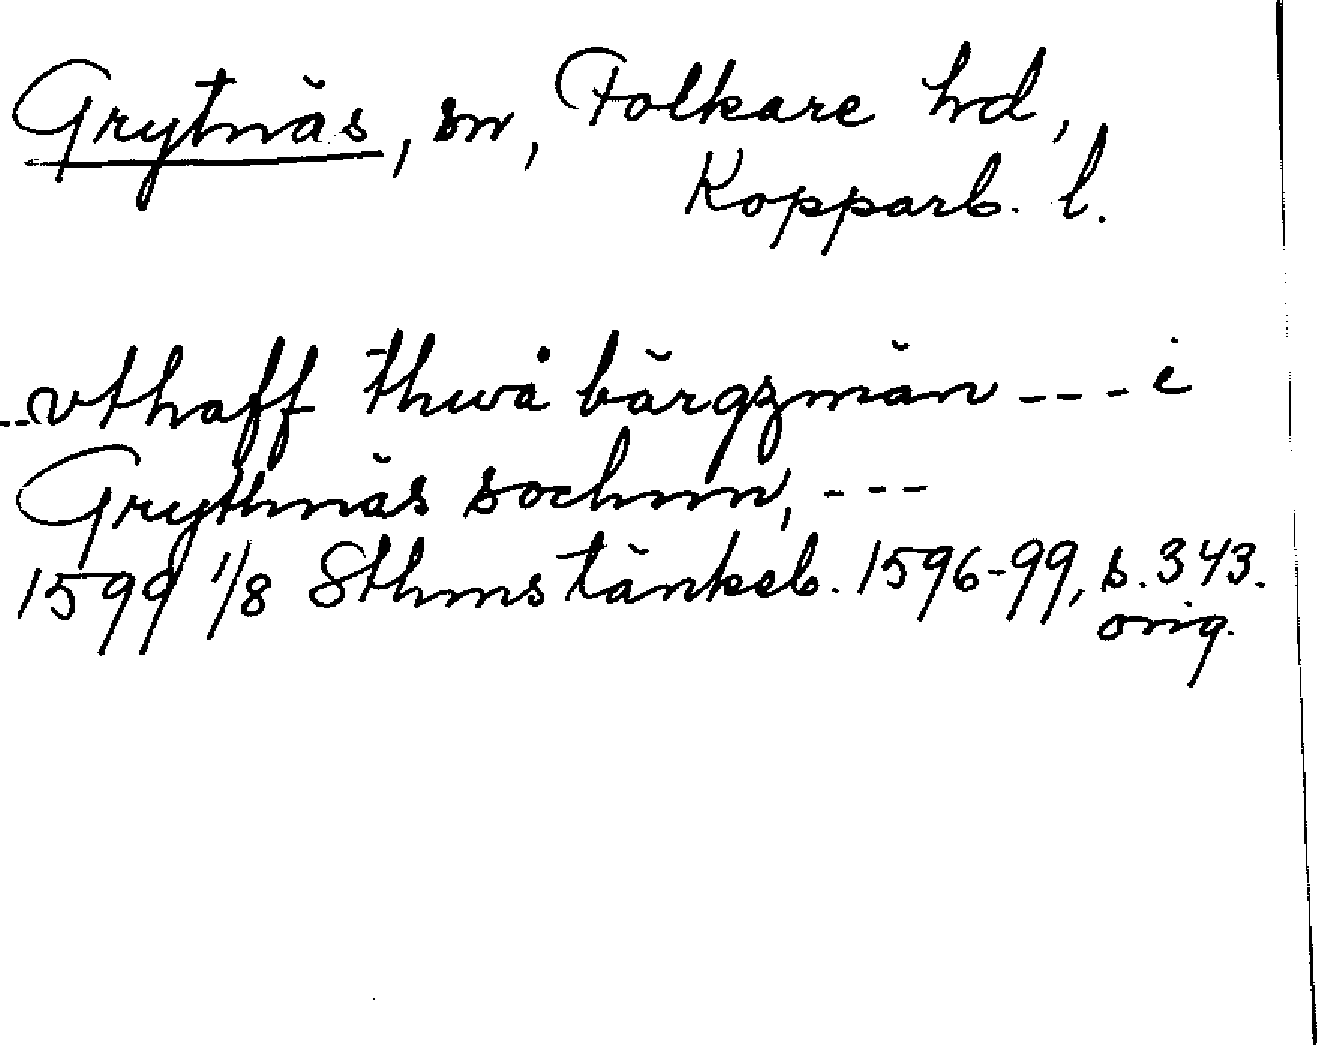 Grytnäs, sn, Folkare hd,
Kopparb. l.
--vthaff thwå bärgzmän --- i
Grythnäs sochnn, ---
1599 1/8 Sthms tänkeb. 1596-99, s. 343.
orig.